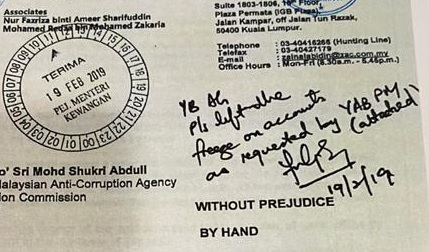 Associates
Nur Fazriza binti Ameer Sharifuddin
Mohamed Redza bin Mohamed Zakaria
Suite 1803-1806, 18th Floor,
Plaza Permata (IGB Plaza),
Jalan Kampar, off Jalan Tun Razak,
50400 Kuala Lumpur.
Telephone : 03-40416266 (Hunting Line)
Telefax : 03-40427179
E-mail : zainalabidin@zac.com.my
Office Hours : Mon-Fri (8.30a.m. - 5.45p.m.)
TERIMA
19 FEB 2019
PEJ. MENTERI
KEWANGAN
YB AG
Pls lift the
freeze on accounts
as requested by YAB PM
(attached)
19/2/19
o' Sri Mohd Shukri Abdull
alaysian Anti-Corruption Agency
ion Commission
WITHOUT PREJUDICE
BY HAND